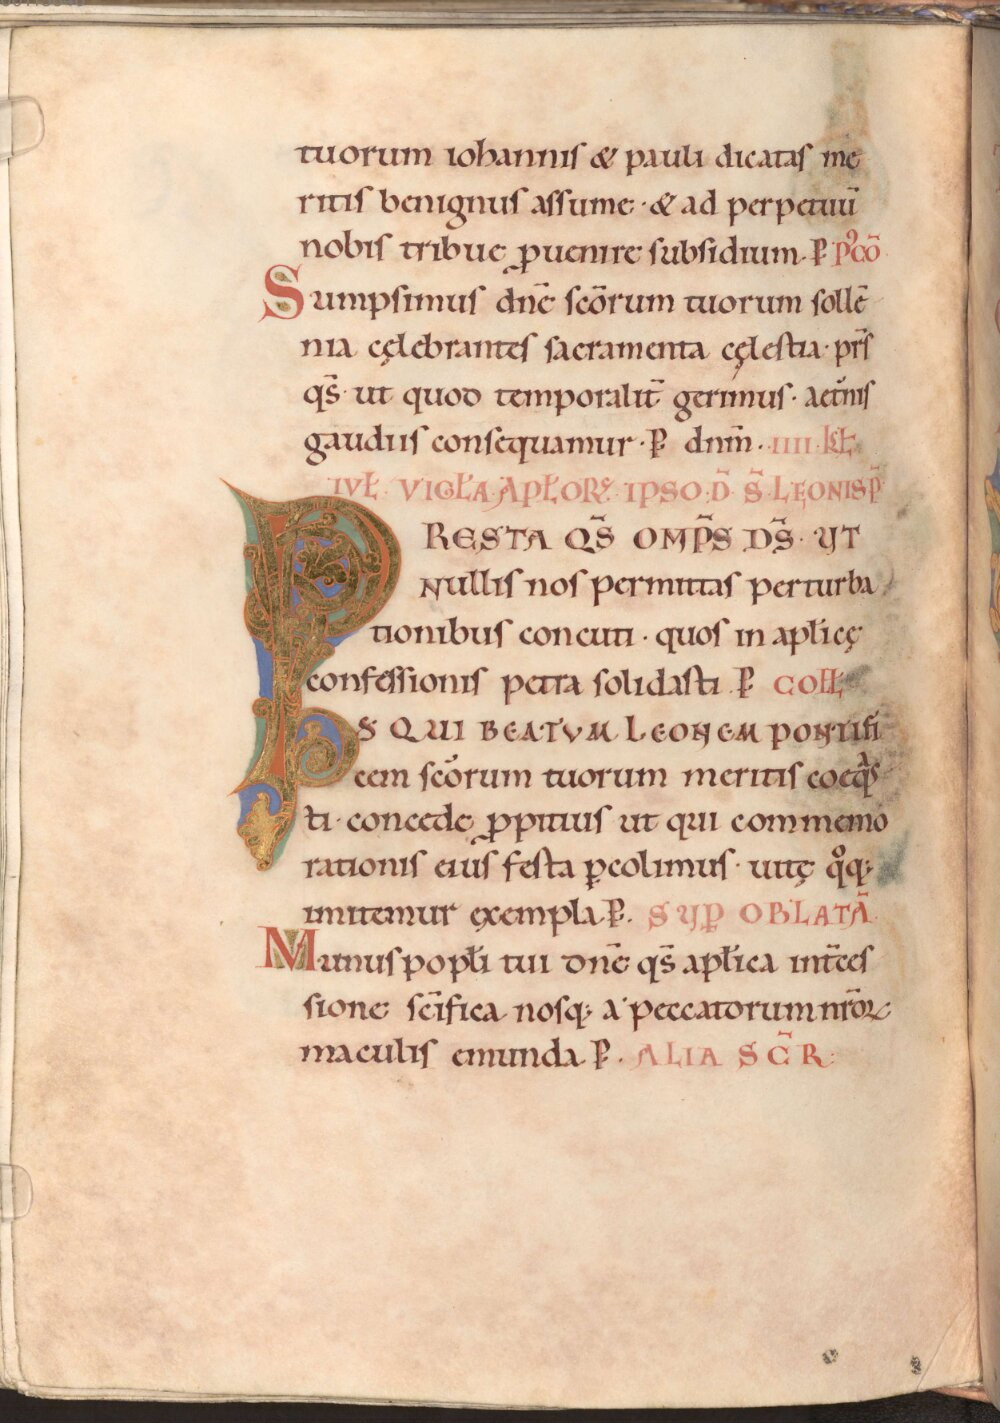 tuorum iohannis & pauli dicatas me
ritis benignus assume · & ad perpetuū
nobis tribue ꝑuenire subsidium. ꝑ Pꝰcō
Sumpsimus dn̄e scōrum tuorum sollē
nia cęlebrantes sacramenta cęlestia · pr̄s
qs̄ · ut quod temporalit̄ gerimus · aet̄nis
gaudiis consequamur · ꝑ dnm̄ · IIII kł
IVŁ · VIGŁA · APŁORꝜ · IPSO · D̄ S̄ · LEONIS P̄
PRESTA QS̄ OMP̄S DS̄ · UT
Nullis nos permittas perturba
tionibus concuti · quos in apłicę
confessionis petra solidasti ꝑ COŁŁ
DS QUI BEATVM LEONEM PONTIFI
cem scōrum tuorum meritis coęq̄s
ti · concede ꝓpitius ut qui commemo
rationis eius festa ꝑcolimus · uitę qoq;
imitemur exempla. ꝑ. SUP OBLATĀ
Munus popłi tui dn̄e qs̄ apłica int̄ces
sione sc̄ifica nosq; a peccatorum nr̄oꝝ
maculis emunda ꝑ. ALIA SC̄R